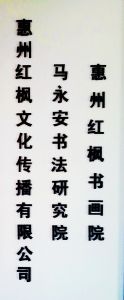 惠州红枫书画院
马永安书法研究院
惠州红枫文化传播有限公司